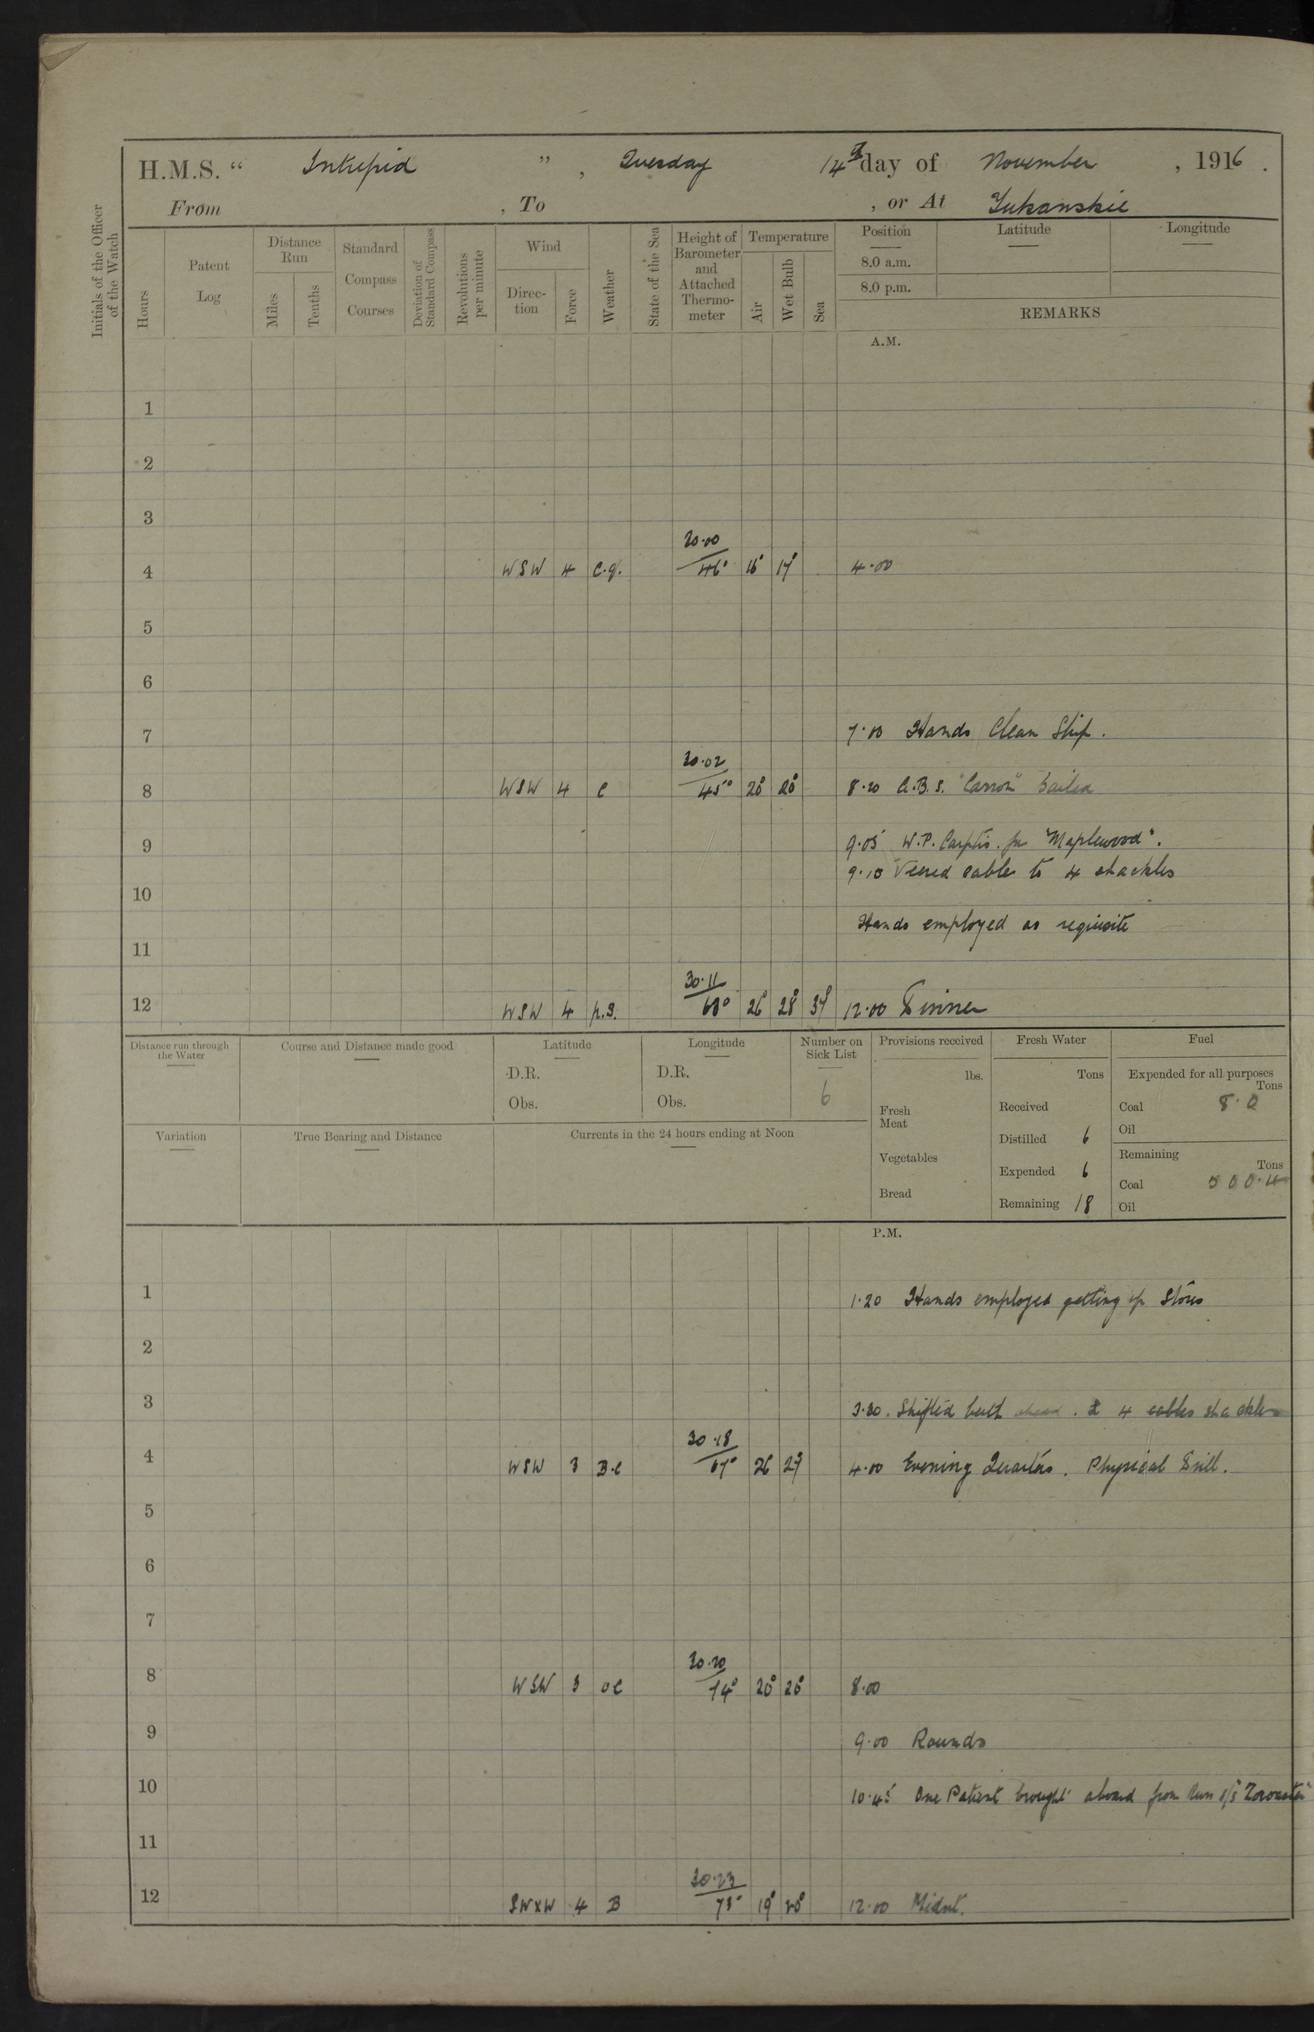 H.M.S. “ Intrepid ” , Tuesday 14th day of November , 1916 .
From , To , or At Yukanskie
Initials of the Officer of the Watch
Hours
Patent Log
Distance Run
Miles
Tenths
Standard Compass Courses
Deviation of Standard Compass
Revolutions per minute
Wind
Direc-tion
Force
Weather
State of the Sea
Height of Barometer and Attached Thermo-meter
Temperature
Air
Wet Bulb
Sea
Position
8.0 a.m.
8.0 p.m.
Latitude
Longitude
REMARKS
A.M.
1
2
3
30·00
4 WSW 4 c.q. 46° 16° 17° 4·00
5
6
7 7·00 Hands Clean Ship.
30·02
8 WSW 4 c 45° 20° 20° 8·20 A.B.S. "Carron" Sailed
9 9·05 W.P. for "Maplewood".
9·10 Veered cable to 4 shackles
10
Hands employed as requisite
11
30·11
12 WSW 4 p.s. 60° 26° 28° 37° 12·00 Dinner
Distance run through the Water
Course and Distance made good
Latitude
D.R.
Obs.
Longitude
D.R.
Obs.
Number on Sick List
6
Variation
True Bearing and Distance
Currents in the 24 hours ending at Noon
Provisions received
lbs.
Fresh Meat
Vegetables
Bread
Fresh Water
Tons
Received
Distilled 6
Expended 6
Remaining 18
Fuel
Expended for all purposes
Tons
Coal 8·0
Oil
Remaining
Tons
Coal 500·4
Oil
P.M.
1 1·20 Hands employed getting up Stores
2
3 3·30. Shifted berth ahead. 4 cables shackles
30·18
4 WSW 3 B.C 67° 26 27 4·00 Evening Quarters. Physical Drill.
5
6
7
30·20
8 WSW 3 oc 74° 20° 20° 8·00
9 9·00 Rounds
10 10·45 One Patient brought aboard from Russ S/S "Zoroaster"
11
30·23
12 SWxW 4 B 73° 19° 20° 12·00 Midnt.